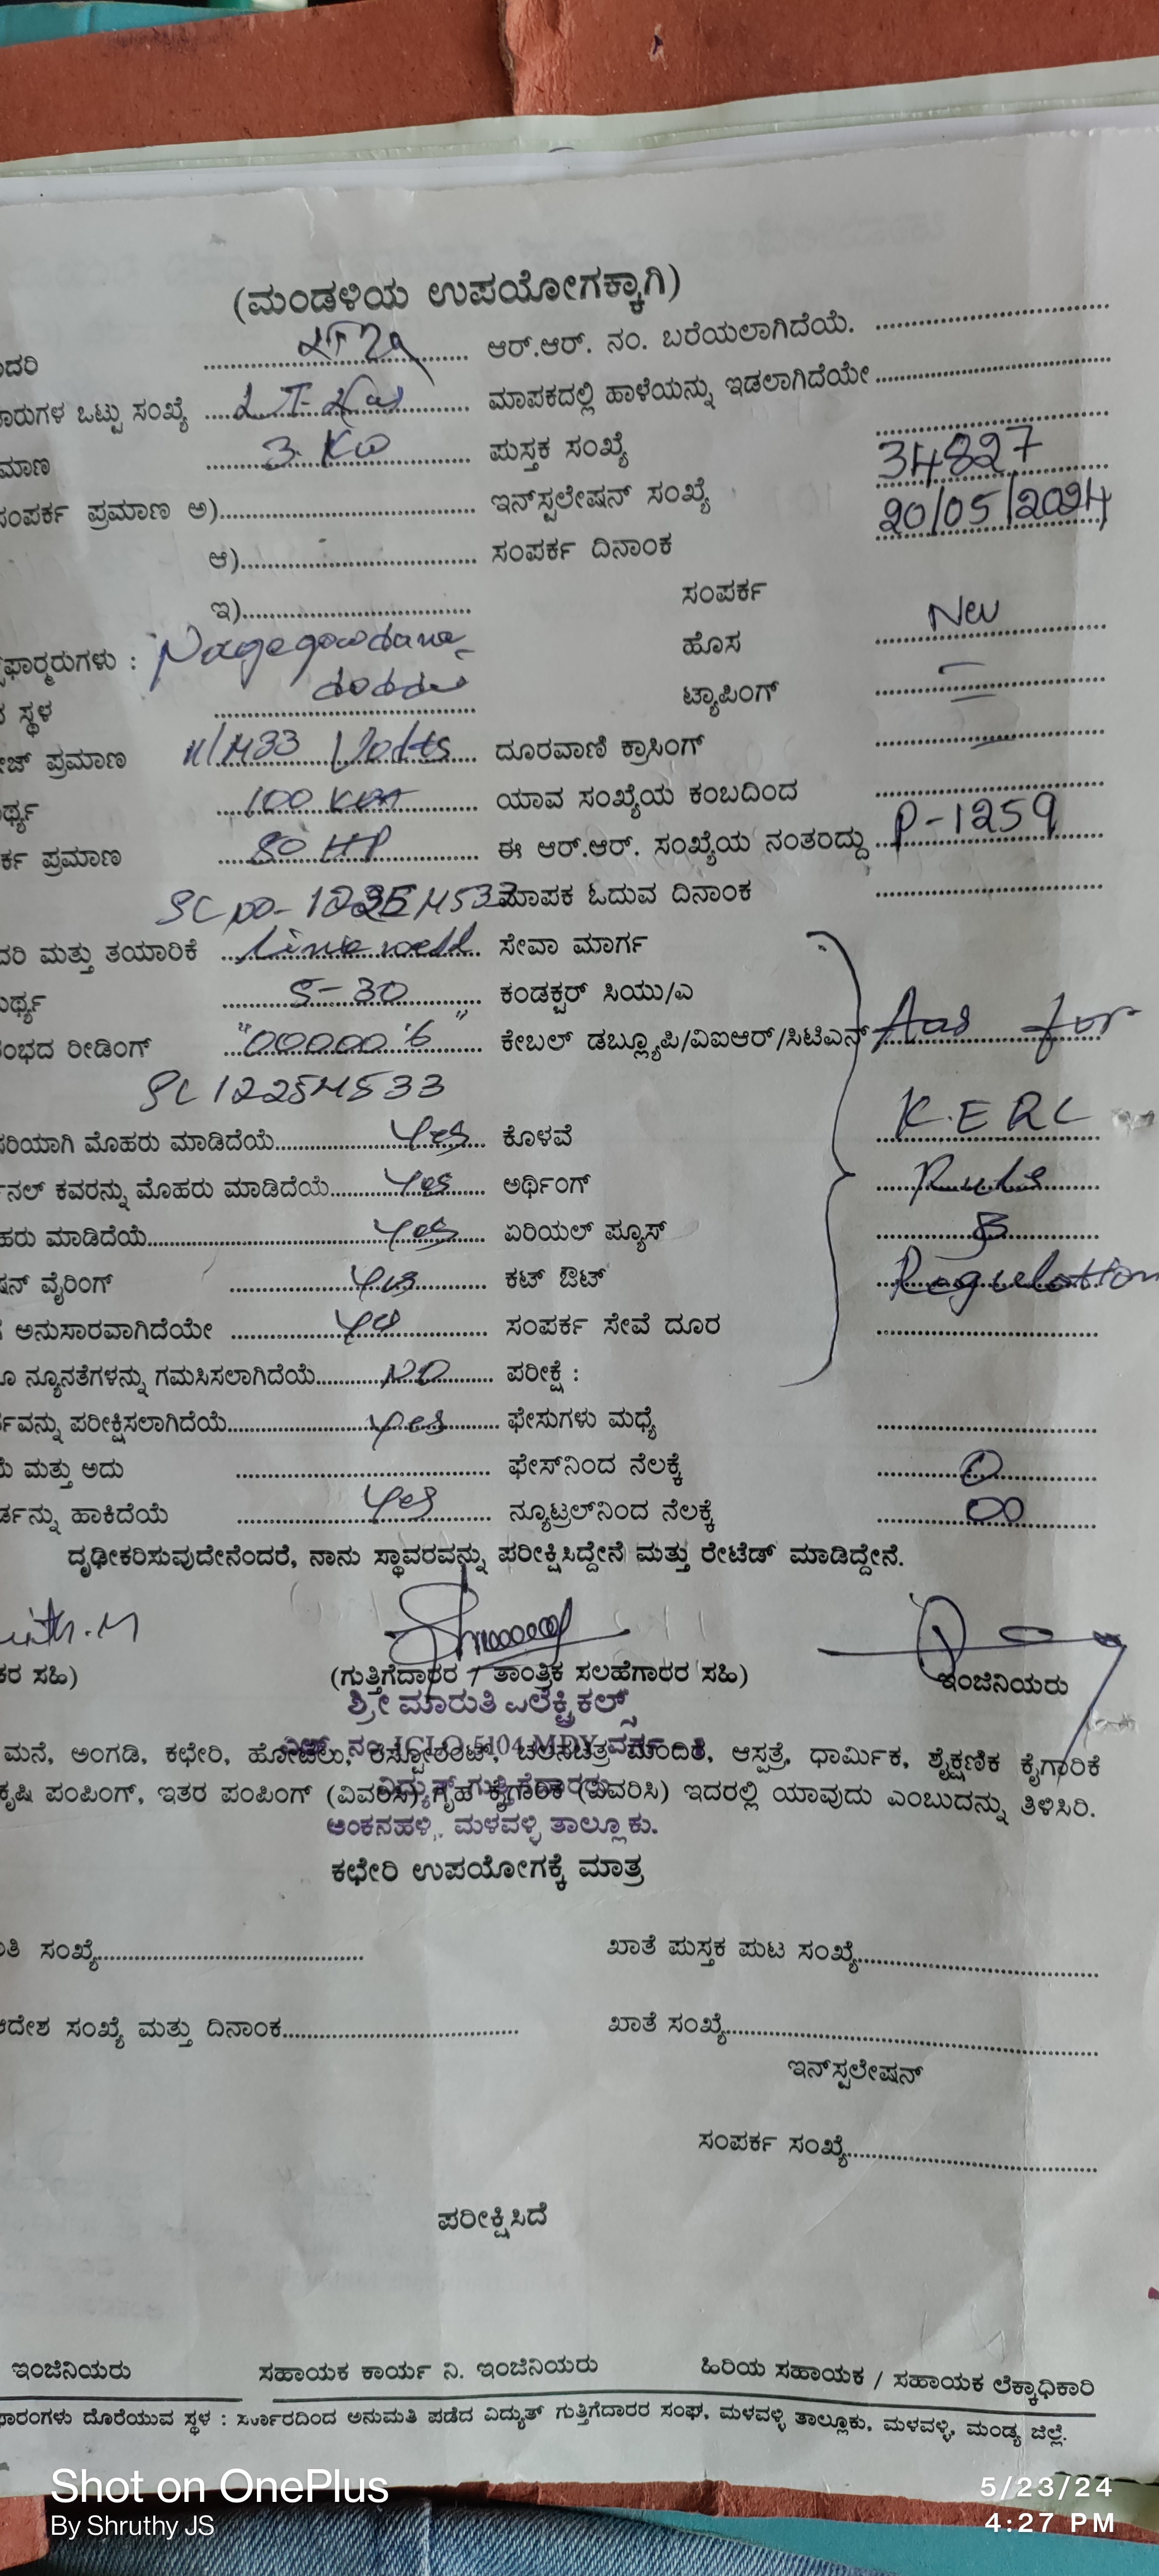 (ಮಂಡಳಿಯ ಉಪಯೋಗಕ್ಕಾಗಿ)
ದರಿ .................... ಆರ್.ಆರ್. ನಂ. ಬರೆಯಲಾಗಿದೆಯೆ. ....................
ಗಳ ಒಟ್ಟು ಸಂಖ್ಯೆ .................... ಮಾಪಕದಲ್ಲಿ ಹಾಳೆಯನ್ನು ಇಡಲಾಗಿದೆಯೇ ....................
ಮಾಣ 3 KW ಪುಸ್ತಕ ಸಂಖ್ಯೆ ....................
ಸಂಪರ್ಕ ಪ್ರಮಾಣ ಅ).................... ಇನ್‌ಸ್ಪಲೇಷನ್ ಸಂಖ್ಯೆ 34827
ಆ).................... ಸಂಪರ್ಕ ದಿನಾಂಕ 20/05/2024
ಇ).................... ಸಂಪರ್ಕ
ಫಾರ್ಮರುಗಳು : Nagegowdana ಹೊಸ New
ಸ್ಥಳ doddi ಟ್ಯಾಪಿಂಗ್ —
ಪ್ರಮಾಣ Volts ದೂರವಾಣಿ ಕ್ರಾಸಿಂಗ್ —
ರ್ಥ್ಯ 100 ಯಾವ ಸಂಖ್ಯೆಯ ಕಂಬದಿಂದ ....................
ರ್ಕ ಪ್ರಮಾಣ 80 HP ಈ ಆರ್.ಆರ್. ಸಂಖ್ಯೆಯ ನಂತರದ್ದು P-1259
ಮಾಪಕ ಓದುವ ದಿನಾಂಕ ....................
ದರಿ ಮತ್ತು ತಯಾರಿಕೆ Linkwell ಸೇವಾ ಮಾರ್ಗ
ರ್ಥ್ಯ 5-30 ಕಂಡಕ್ಟರ್ ಸಿಯು/ಎ
ಂಭದ ರೀಡಿಂಗ್ "00000.6" ಕೇಬಲ್ ಡಬ್ಲ್ಯೂಪಿ/ವಿಐಆರ್/ಸಿಟಿಎಸ್ for
ಸರಿಯಾಗಿ ಮೊಹರು ಮಾಡಿದೆಯೆ Yes ಕೊಳವೆ K.ERC
ನಲ್ ಕವರನ್ನು ಮೊಹರು ಮಾಡಿದೆಯೆ Yes ಅರ್ಥಿಂಗ್ Rules
ಹರು ಮಾಡಿದೆಯೆ Yes ಏರಿಯಲ್ ಪ್ಯೂಸ್
ಷನ್ ವೈರಿಂಗ್ Yes ಕಟ್ ಔಟ್ Regulation
ಅನುಸಾರವಾಗಿದೆಯೇ Yes ಸಂಪರ್ಕ ಸೇವೆ ದೂರ ....................
ನ್ಯೂನತೆಗಳನ್ನು ಗಮಸಿಸಲಾಗಿದೆಯೆ NO ಪರೀಕ್ಷೆ :
ವನ್ನು ಪರೀಕ್ಷಿಸಲಾಗಿದೆಯೆ Yes ಫೇಸುಗಳು ಮಧ್ಯೆ ....................
ಮತ್ತು ಅದು .................... ಫೇಸ್‌ನಿಂದ ನೆಲಕ್ಕೆ 0
ರ್ಡನ್ನು ಹಾಕಿದೆಯೆ Yes ನ್ಯೂಟ್ರಲ್‌ನಿಂದ ನೆಲಕ್ಕೆ 00
ದೃಢೀಕರಿಸುವುದೇನೆಂದರೆ, ನಾನು ಸ್ಥಾವರವನ್ನು ಪರೀಕ್ಷಿಸಿದ್ದೇನೆ ಮತ್ತು ರೇಟೆಡ್ ಮಾಡಿದ್ದೇನೆ.
ಕರ ಸಹಿ) (ಗುತ್ತಿಗೆದಾರರ / ತಾಂತ್ರಿಕ ಸಲಹೆಗಾರರ ಸಹಿ) ಇಂಜಿನಿಯರು
ಶ್ರೀ ಮಾರುತಿ ಎಲೆಕ್ಟ್ರಿಕಲ್ಸ್
ಮನೆ, ಅಂಗಡಿ, ಕಛೇರಿ, ಹೋಟೆಲು, ರೆಸ್ಟೋರೆಂಟ್, ಚಲನಚಿತ್ರ ಮಂದಿರ, ಆಸ್ಪತ್ರೆ, ಧಾರ್ಮಿಕ, ಶೈಕ್ಷಣಿಕ ಕೈಗಾರಿಕೆ
ಕೃಷಿ ಪಂಪಿಂಗ್, ಇತರ ಪಂಪಿಂಗ್ (ವಿವರಿಸಿ) ಗೃಹ ಕೈಗಾರಿಕೆ (ವಿವರಿಸಿ) ಇದರಲ್ಲಿ ಯಾವುದು ಎಂಬುದನ್ನು ತಿಳಿಸಿರಿ.
ಅಂಕನಹಳ್ಳಿ, ಮಳವಳ್ಳಿ ತಾಲ್ಲೂಕು.
ಕಛೇರಿ ಉಪಯೋಗಕ್ಕೆ ಮಾತ್ರ
ತಿ ಸಂಖ್ಯೆ.................... ಖಾತೆ ಪುಸ್ತಕ ಪುಟ ಸಂಖ್ಯೆ....................
ಆದೇಶ ಸಂಖ್ಯೆ ಮತ್ತು ದಿನಾಂಕ.................... ಖಾತೆ ಸಂಖ್ಯೆ....................
ಇನ್‌ಸ್ಪಲೇಷನ್
ಸಂಪರ್ಕ ಸಂಖ್ಯೆ....................
ಪರೀಕ್ಷಿಸಿದೆ
ಇಂಜಿನಿಯರು ಸಹಾಯಕ ಕಾರ್ಯ ನಿ. ಇಂಜಿನಿಯರು ಹಿರಿಯ ಸಹಾಯಕ / ಸಹಾಯಕ ಲೆಕ್ಕಾಧಿಕಾರಿ
ಫಾರಂಗಳು ದೊರೆಯುವ ಸ್ಥಳ : ಸರ್ಕಾರದಿಂದ ಅನುಮತಿ ಪಡೆದ ವಿದ್ಯುತ್ ಗುತ್ತಿಗೆದಾರರ ಸಂಘ, ಮಳವಳ್ಳಿ ತಾಲ್ಲೂಕು, ಮಳವಳ್ಳಿ, ಮಂಡ್ಯ ಜಿಲ್ಲೆ.
Shot on OnePlus
By Shruthy JS
5/23/24
4:27 PM